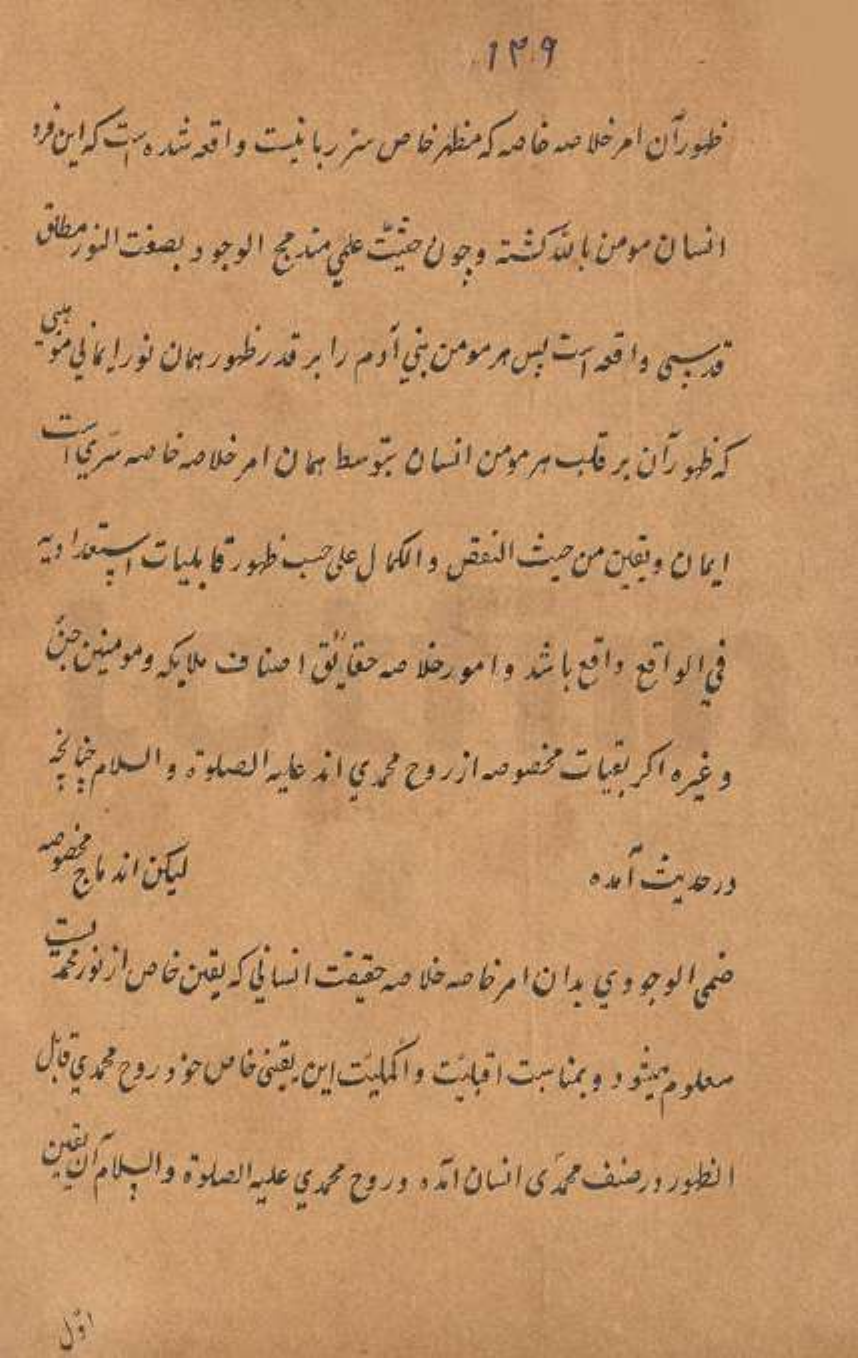 ۱۴۹
ظهور آن امر خلاصه خاصه که مظهر خاص سر ربانیت واقعه شده است که این فرد
انسان مومن بالله کشته و چون حقیّت علمی مندمج الوجود بصفت النور مطلق
قدسی واقعه است پس هر مومن بنی آدم را بر قدر ظهور همان نور ایمانی موهبی
که ظهور آن بر قلب هر مومن انسان بتوسط همان امر خلاصه خاصه سری است
ایمان و یقین من حیث النقص و الکمال علی حسب ظهور قابلیات استعدادیه
فی الواقع واقع باشد و امور خلاصه حقائق اصناف ملایکه و مومنین جن
و غیره اکر بقیات مخصوصه از روح محمدی اند علیه الصلوة والسلام چنانچه
در حدیث آمده لیکن اندماج مخصوصه
ضمی الوجودی بدان امر خاصه خلاصه حقیقت انسانی که یقین خاص از نور محمدیست
معلوم میشود و بمناسبت اقبلیّت و اکملیّت این یقینی خاص خود روح محمدی قابل
الظهور در صنف محمدی انسان آمده و روح محمدی علیه الصلوة والسلام آن یقین
اوّل